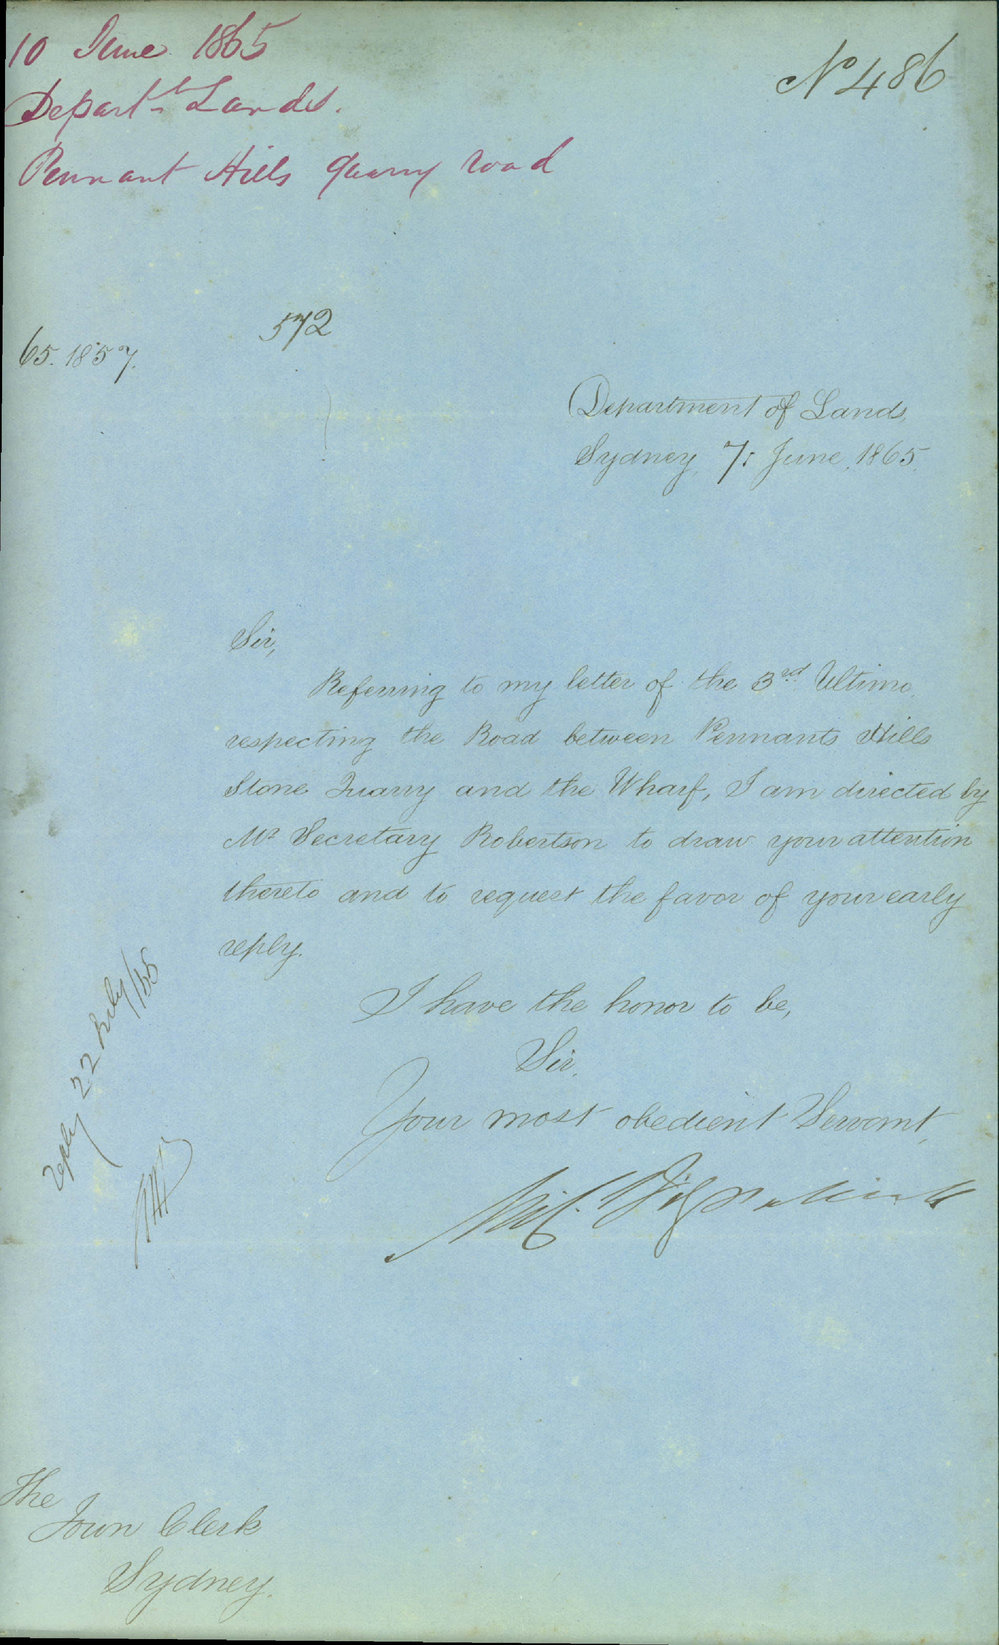 10 June 1865
No 486
Depart.t Lands.
Pennant Hills Quarry road
572
65.1857.
Department of Lands,
Sydney, 7: June, 1865.
Sir,
Referring to my letter of the 3rd Ultimo,
respecting the Road between Pennants Hills
Stone Quarry and the Wharf, I am directed by
Mr Secretary Robertson to draw your attention
thereto and to request the favor of your early
reply.
I have the honor to be,
Sir,
Your most obedient Servant,
Mic. Fitzpatrick
reply 22 July/65
The
Town Clerk
Sydney.